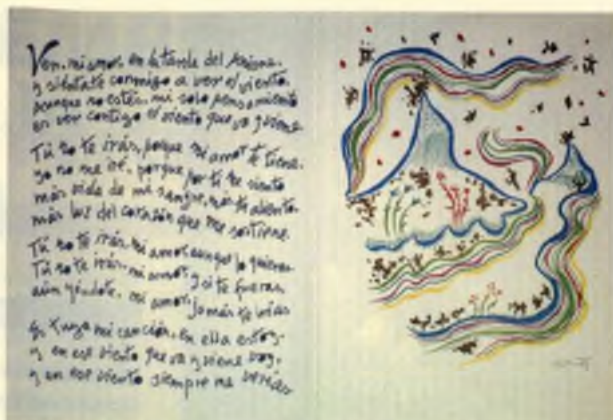 Ven, mi amor, en la tarde del Aniene
y siéntate conmigo a ver el viento.
Aunque no estés, mi solo pensamiento
es ver contigo el viento que va y viene.
Tú no te irás, porque mi amor te tiene.
Yo no me iré, porque por ti me siento
más vida de mi sangre, más tu aliento,
más luz del corazón que me sostiene.
Tú no te irás, mi amor, aunque lo quieras.
Tú no te irás, mi amor, y si te fueras,
aún yéndote, mi amor, jamás te irías
Es tuya mi canción, en ella estoy.
y en ese viento que va y viene voy.
y en ese viento siempre me verías